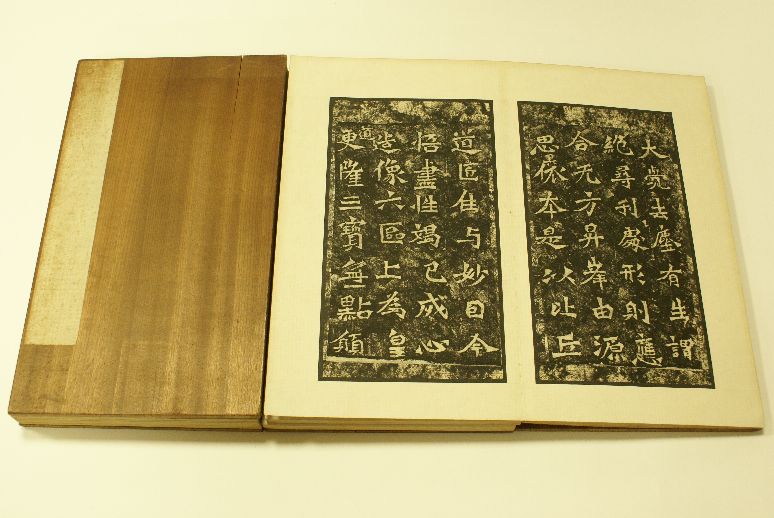 大覺去塵有生謂
絕尋利處形則應
合无方昇峯由源
思依本是以比丘
道匠住与妙因今
悟盡性竭已成心
造像六區上為皇
道更隆三寶無點願